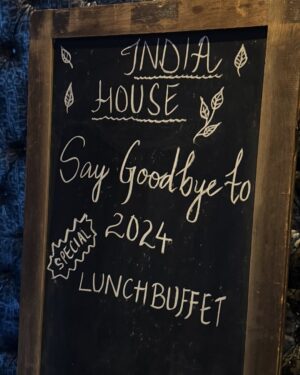 INDIA
HOUSE
Say Goodbye to
2024
SPECIAL
LUNCH BUFFET